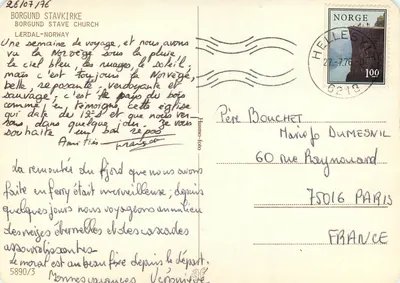 26/07/76
BORGUND STAVKIRKE
BORGUND STAVE CHURCH
LÆRDAL-NORWAY
Une semaine de voyage, et nous avons
vu la Norvège sous la pluie
le ciel bleu, les nuages, le soleil;
mais c'est toujours la Norvège,
belle, reposante, verdoyante et
sauvage, c'est le pays du bois
comme l'en témoigne cette église
qui date du 12è et que nous verrons
dans quelque jour. Je vous
souhaite un bon repos
Amitiés François
La remontée du fjord que nous avons
faite en ferry était merveilleuse; depuis
quelques jours nous voyageons au milieu
des neiges éternelles et des cascades
assourdissantes.
Le moral est au beau fixe depuis le départ.
Bonnes vacances Véronique
5890/3
NORGE
1.00
HELLE
27.-7.76
6219
Père BOUCHET
Marie Jo DUMESNIL
60 Rue Raynouard
75016 PARIS
FRANCE